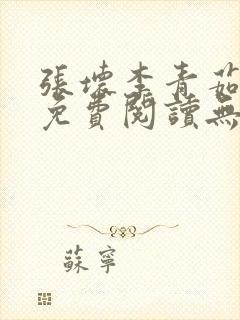 張壞李青茹
免費閱讀無
蘇寧